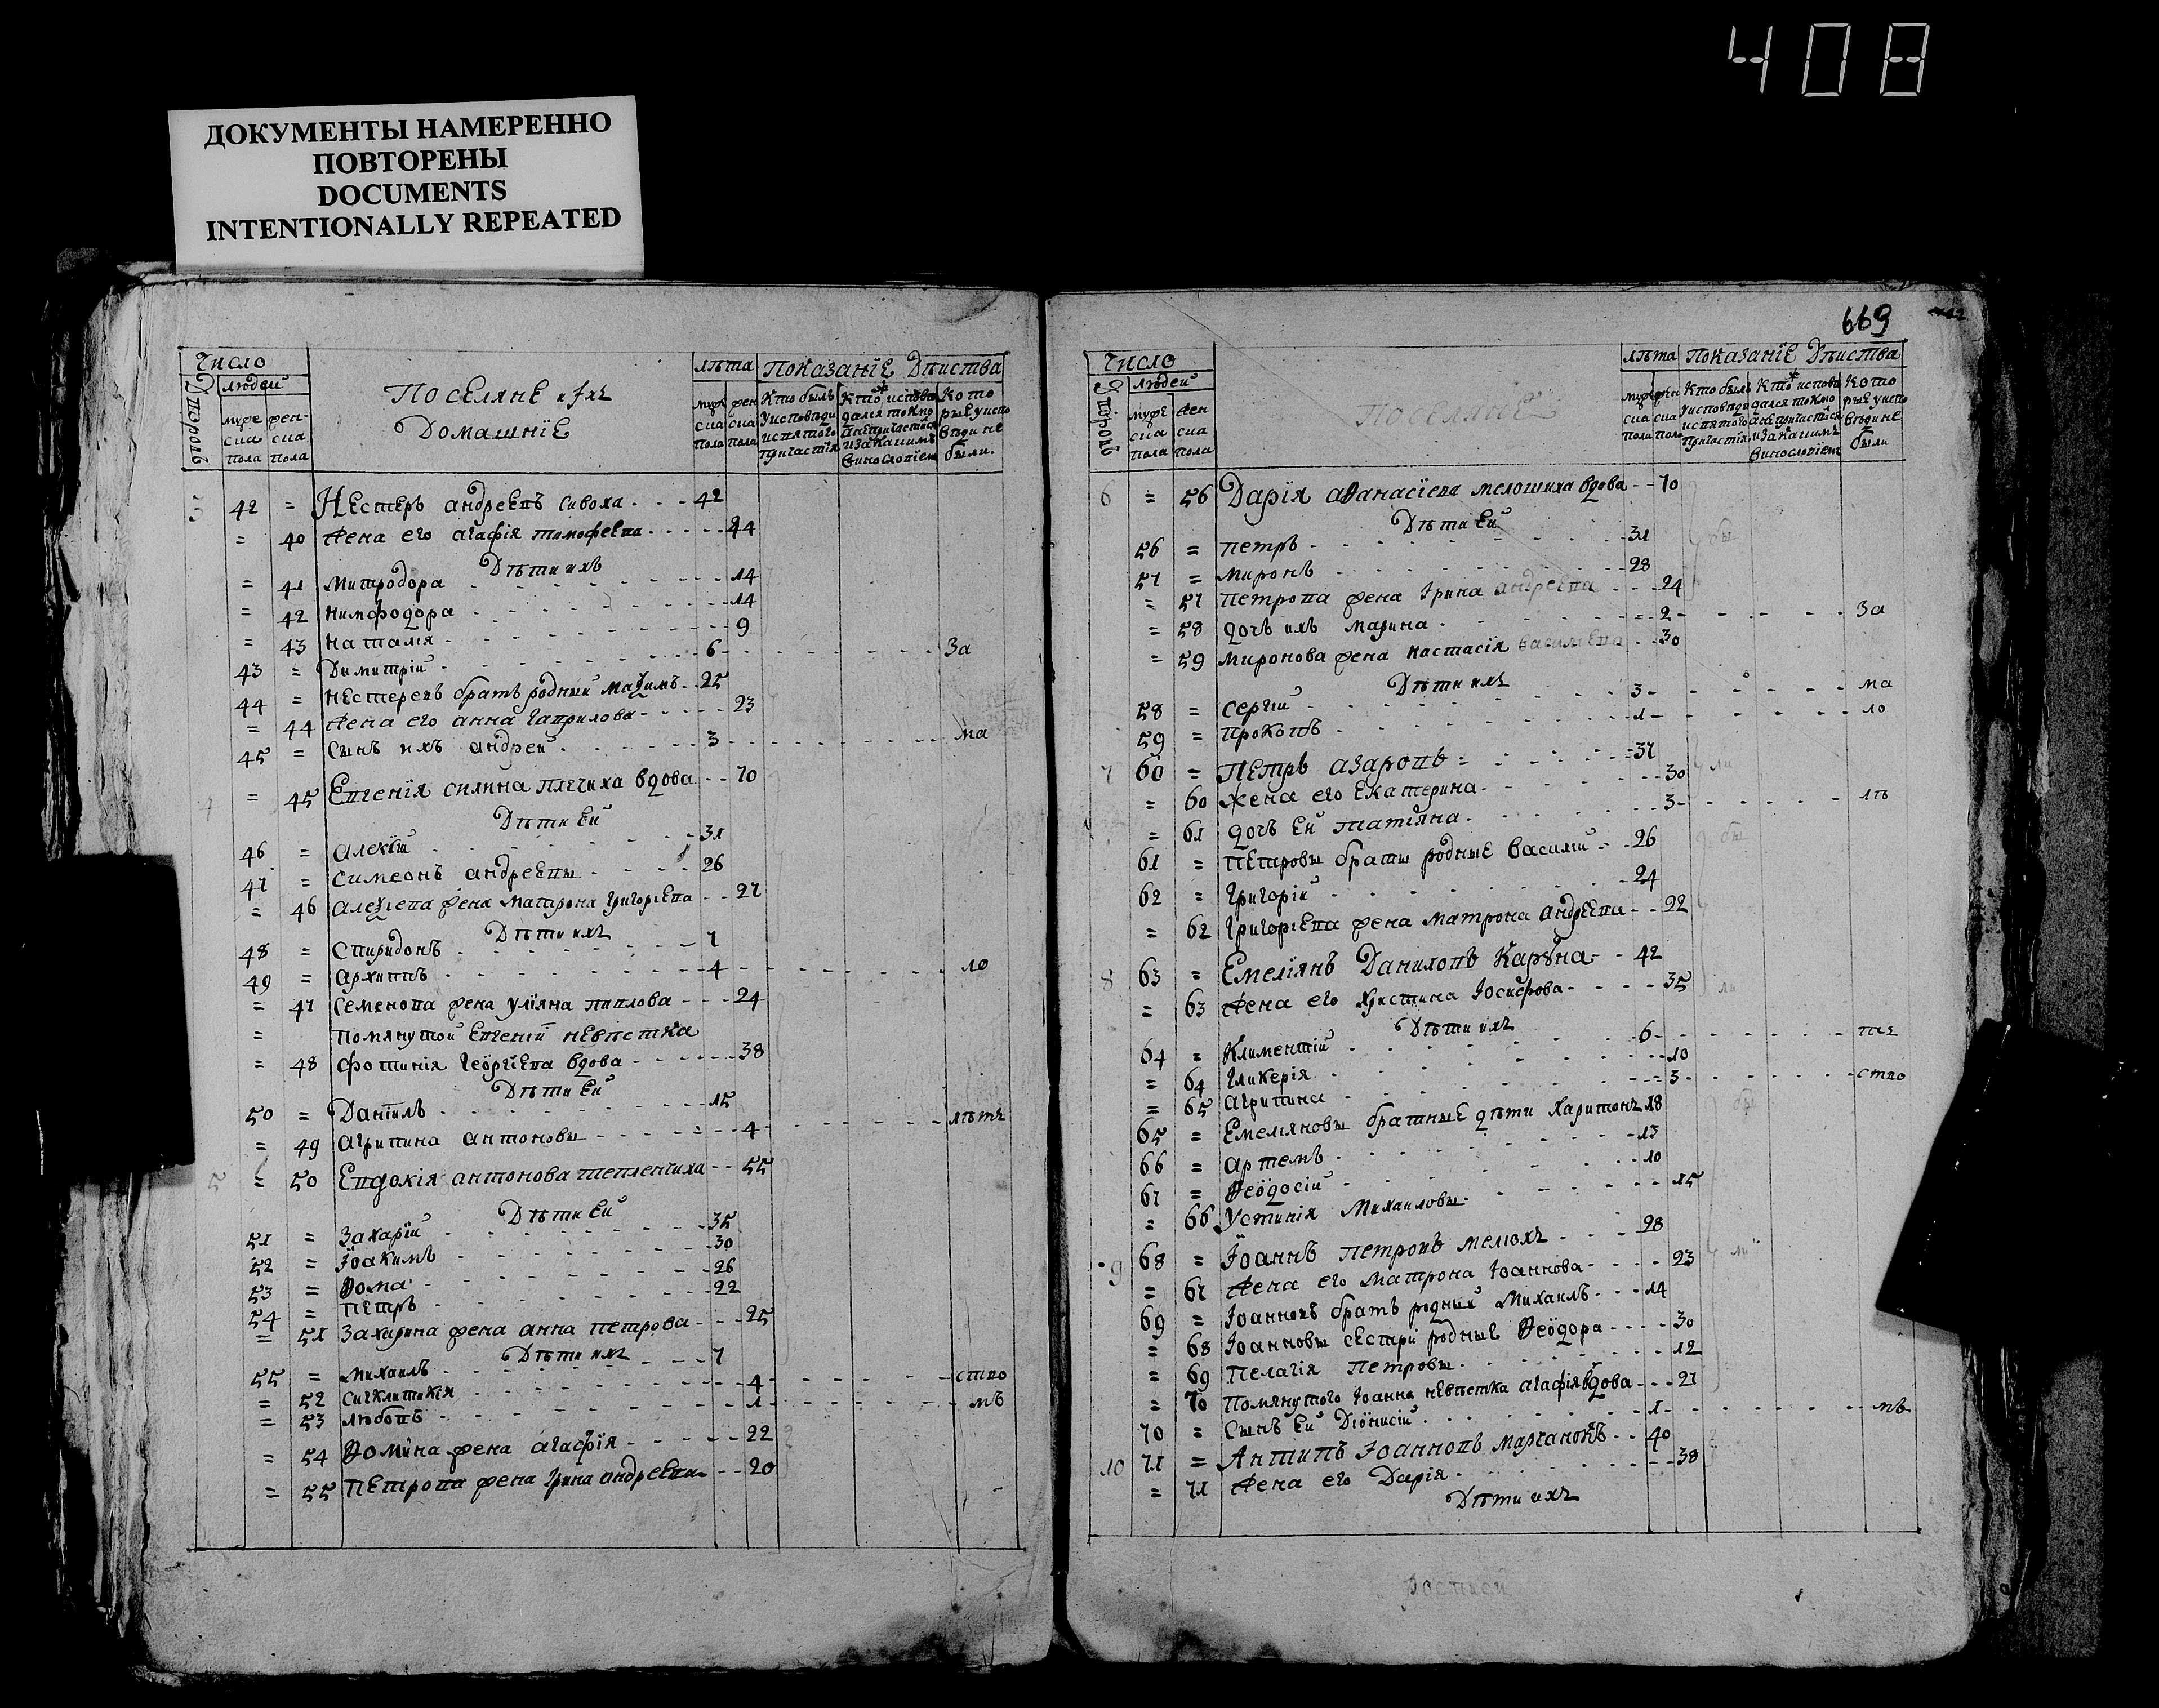 408
ДОКУМЕНТЫ НАМЕРЕННО
ПОВТОРЕНЫ
DOCUMENTS
INTENTIONALLY REPEATED
Число
Дворовъ
людей
муже
ска
пола
жен-
ска
пола
Поселяне и Ихъ
Домашнїе
лѣта
муж
ска
пола
жен
ска
пола
Показанїе Дѣиства
Кто былъ
Уисповѣди
исвятого
причастїя
Кто исповѣ
дался токмо
анепричастися
изакакимъ
винословїем
Кото
рые уиспо
вѣди не
были.
3 42 = Нестеръ андреевъ сивоха - - - 42
= 40 жена его агафїя тимофеева - - - - - 44
Дѣти ихъ
= 41 Митродора - - - 14
= 42 нимфодора - - - 14
= 43 наталїя - - - 9
43 = Димитрїи - - - 6 - - - За
44 = нестеревъ братъ родный маѯимъ - - 25
= 44 жена его анна гаврилова - - - 23
45 = сынъ ихъ андреи - - - 3 - - - ма
4 = 45 Евгенїя силина плечиха вдова - - 70
Дѣти Еи
46 = алеѯїи - - - 31
47 = симеонъ андреевы - - - 26
= 46 алеѯїева жена матрона григорїева - - 27
Дѣти ихъ
48 = спиридонъ - - - 7
49 = архиппъ - - - 4 - - - ло
= 47 семенова жена улїяна павлова - - - 24
= помянутои Евгенїи невѣстка
= 48 фотинїя георгїева вдова - - - 38
Дѣти Еи
50 = Данїилъ - - - 15
= 49 агрипина антоновы - - - 4 - - - лѣтъ
5 = 50 Евдокїя антонова тепленчиха - - 55
Дѣти Еи
51 = Захарїи - - - 35
52 = Іоакимъ - - - 30
53 = Ѳома - - - 26
54 = петръ - - - 22
= 51 Захарина жена анна петрова - - - 25
Дѣти ихъ
55 = михаилъ - - - 7
= 52 сигклитикїя - - - 4 - - - ство
= 53 любовъ - - - 1 - - - мъ
= 54 Ѳомина жена агафїя - - - 22
= 55 петрова жена Ірина андреева - - 20
669
Число
Дворовъ
людей
муже
ска
пола
жен
ска
пола
поселянѣ
лѣта
муже
ска
пола
жен
ска
пола
Показанїе Дѣиства
Кто былъ
уисповѣди
исвятого
причастїя
Кто испов
дался токмо
анепричастися
изакакимъ
винословїем
Кото
рые уиспо
вѣди не
были
6 = 56 Дарїя аѳанасїева мелошиха вдова - - 70
Дѣти Еи
56 = петръ - - - 31
57 = миронъ - - - 28
= 57 петрова жена Ірина андреева - - - 24
= 58 дочъ ихъ марина - - - 2 - - - За
= 59 миронова жена настасїя василїева - - 30
Дѣти ихъ
58 = сергїи - - - 3 - - - ма
59 = прокопъ - - - 1 - - - ло
7 60 = Петръ азаровъ - - - 37
= 60 жена его екатерина - - - 30
= 61 дочъ Еи татїяна - - - 3 - - - лѣ
61 = петровы браты родные василїи - - 26
62 = григорїи - - - 24
= 62 григорїева жена матрона андреева - - 22
8 63 = Емелїянъ Даниловъ Каруна - - 42
= 63 жена его христина Іосифова - - - 35
Дѣти ихъ
64 = климентїи - - - 6 - - - тѣ
= 64 гликерїя - - - 10
= 65 агрипина - - - 3 - - - ство
65 = Емелїяновы братные дѣти харитонъ 18
66 = артемъ - - - 13
67 = Ѳеодосїи - - - 10
= 66 устинїя михаиловы - - - 15
9 68 = Іоаннъ петровъ мелюхъ - - - 28
= 67 жена его матрона Іоаннова - - - 23
69 = Іоанновъ братъ родный михаилъ - - - 14
= 68 Іоанновы сестры родные Ѳеодора - - - 30
= 69 пелагїя петровы - - - 12
= 70 помянутого Іоанна невѣстка агафїя вдова - - - 27
70 = сынъ Еи Дїонисїи - - - 1 - - - мъ
10 71 = Антипъ Іоанновъ марганокъ - - 40
= 71 жена его Дарїя - - - 38
Дѣти ихъ